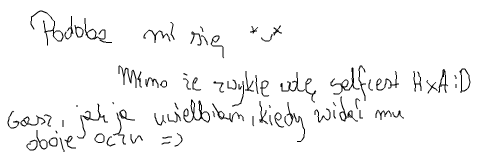 Podoba mi się *~*
Mimo że zwykle wolę selfcest HxA :D
Gosz, jak ja uwielbiam, kiedy widać mu
oboje oczu =)